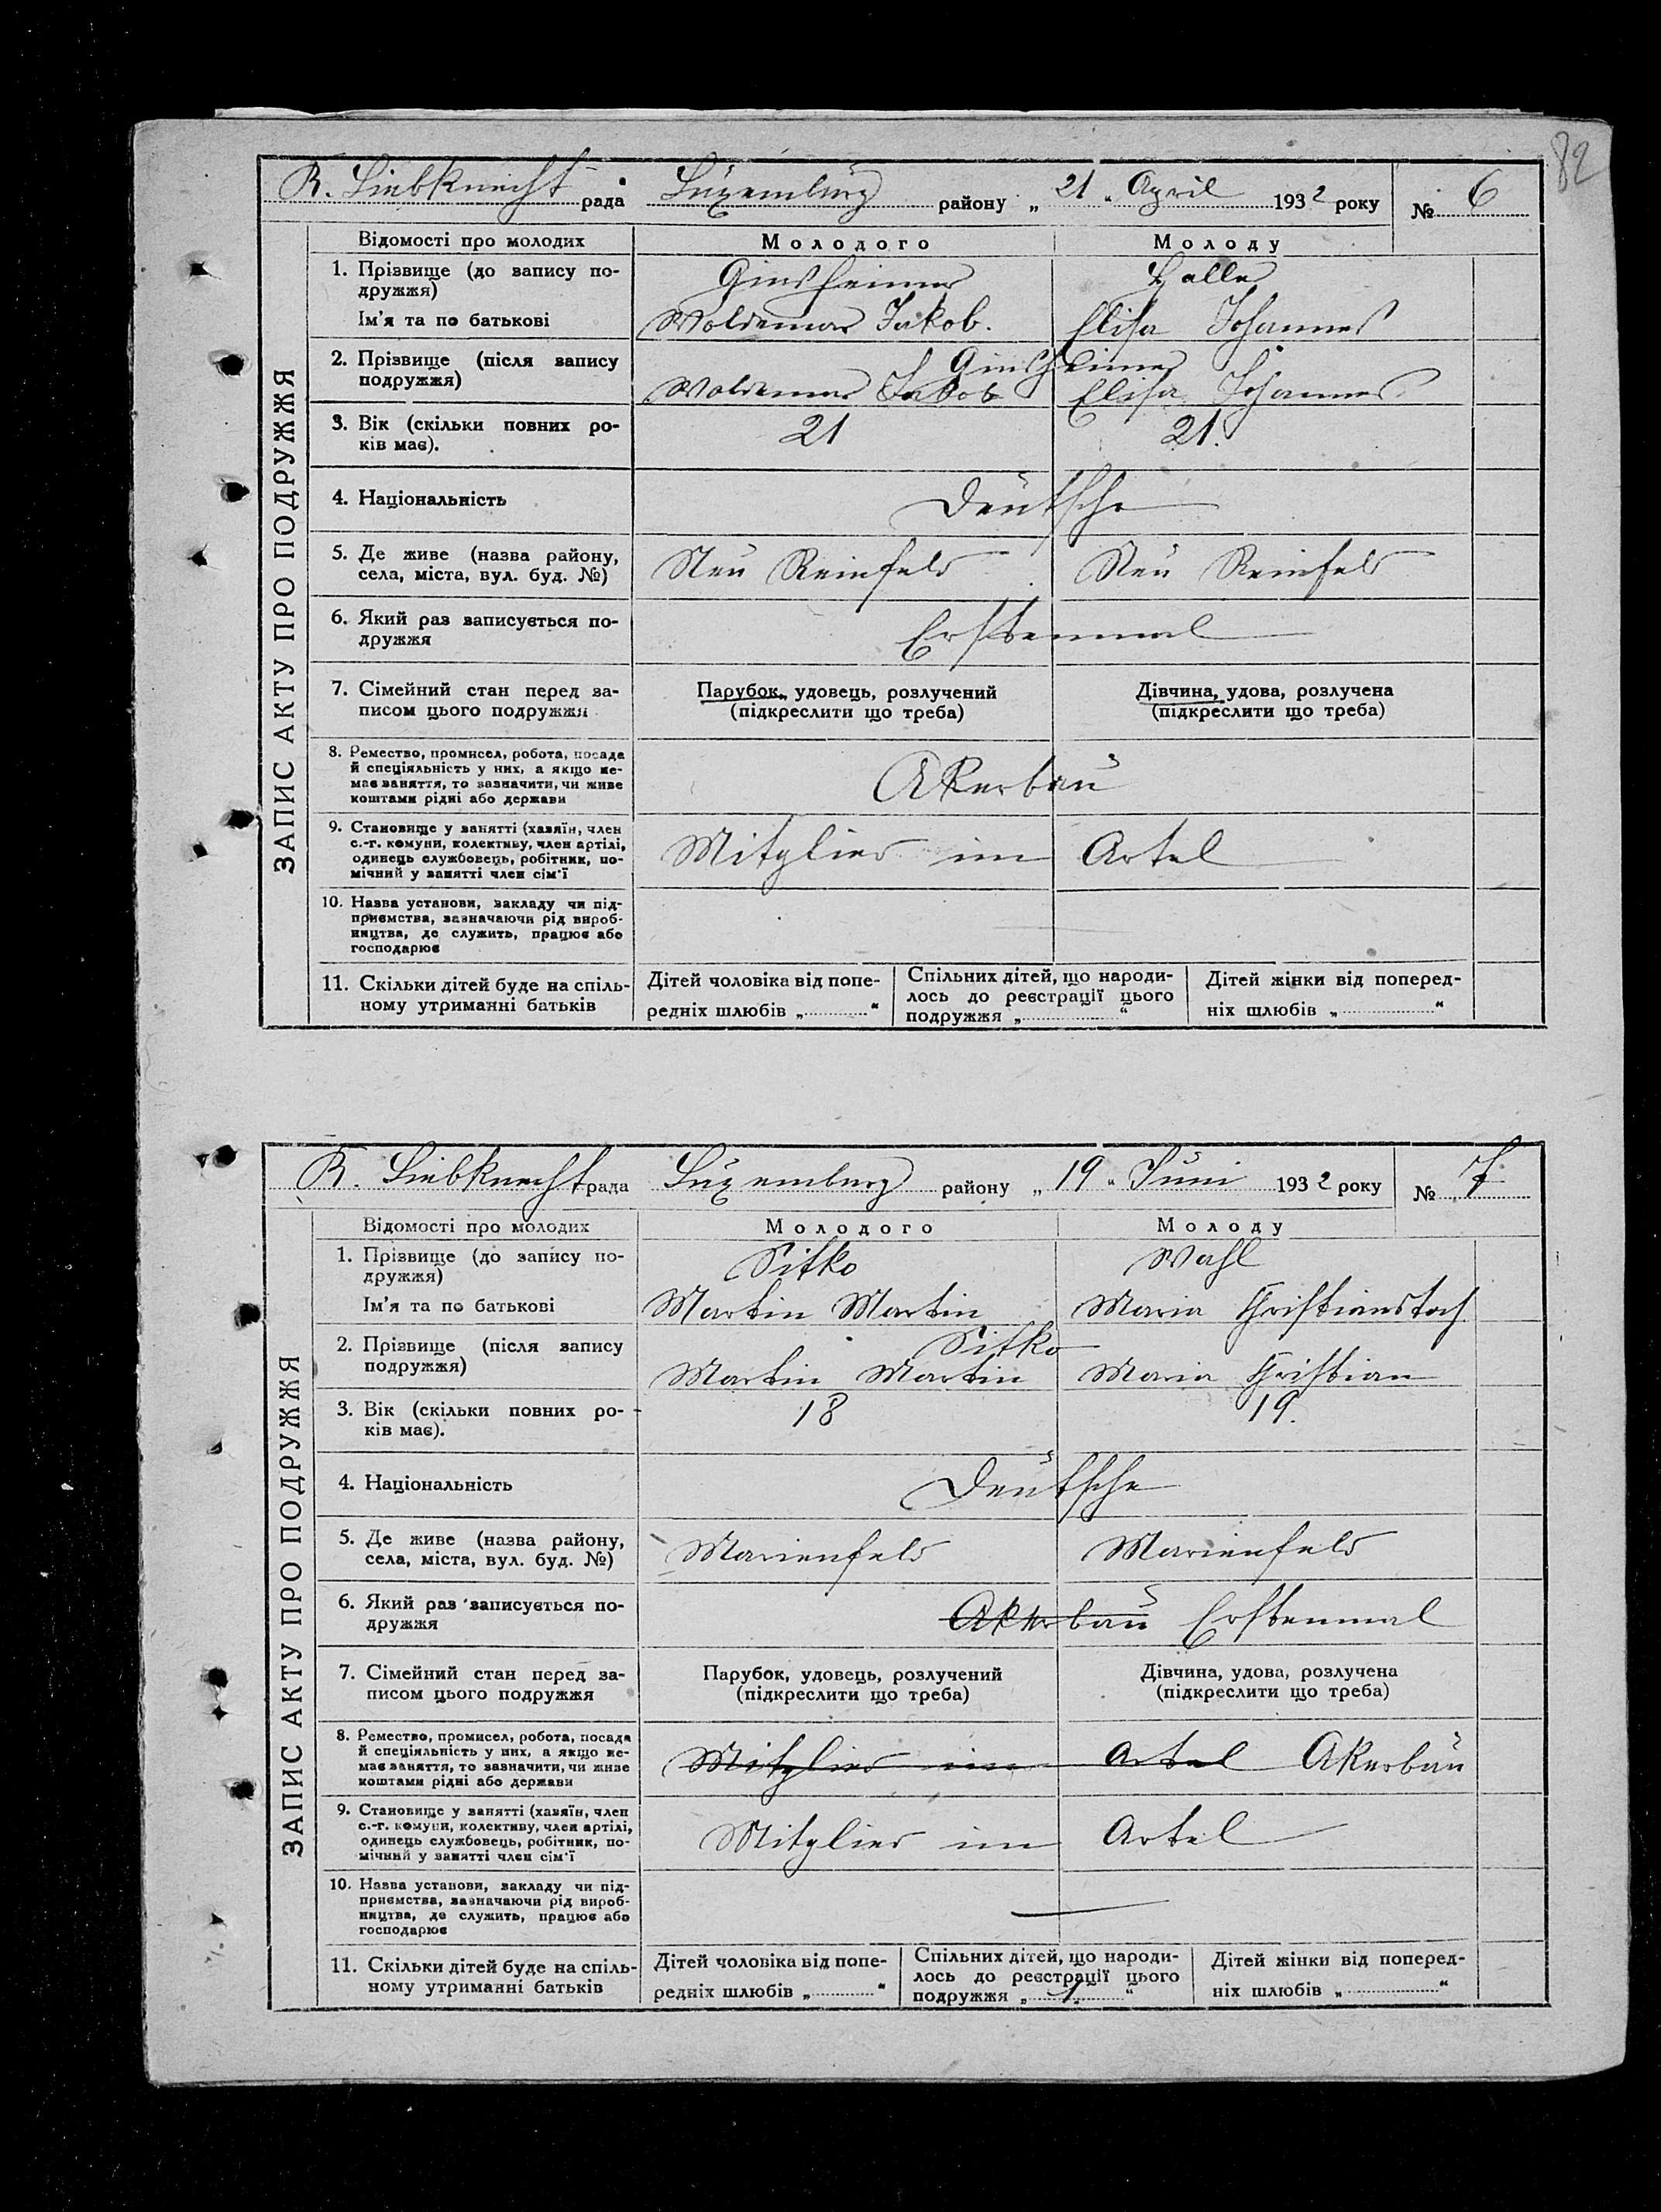 82
K. Liebknecht рада Luxemburg району „ 21 " April 1932 року № 6
ЗАПИС АКТУ ПРО ПОДРУЖЖЯ
Відомості про молодих Молодого Молоду
1. Прізвище (до запису по-
дружжя)
Ginsheimer Halle
Ім'я та по батькові Woldemar Jakob. Elisa Johannes
2. Прізвище (після запису
подружжя)
Ginsheimer
Woldemar Jakob Elisa Johannes
3. Вік (скільки повних ро-
ків має).
21 21.
4. Національність Deutsche
5. Де живе (назва району,
села, міста, вул. буд. №)
Neu Reinfeld Neu Reinfeld
6. Який раз записується по-
дружжя
Erstenmal
7. Сімейний стан перед за-
писом цього подружжя
Парубок, удовець, розлучений
(підкреслити що треба)
Дівчина, удова, розлучена
(підкреслити що треба)
8. Ремество, промисел, робота, посада
й спеціяльність у них, а якщо не-
має заняття, то зазначити, чи живе
коштами рідні або держави
Akerbau
9. Становище у занятті (хазяїн, член
с.-г. комуни, колективу, член артілі,
одинець службовець, робітник, по-
мічний у занятті член сім'ї
Mitglied im Artel
10. Назва установи, закладу чи під-
приємства, зазначаючи рід вироб-
ництва, де служить, працює або
господарює
11. Скільки дітей буде на спіль-
ному утриманні батьків
Дітей чоловіка від попе-
редніх шлюбів „ “
Спільних дітей, що народи-
лось до реєстрації цього
подружжя „ “
Дітей жінки від поперед-
ніх шлюбів „ “
K. Liebknecht рада Luxemburg району „ 19 " Juni 1932 року № 7
ЗАПИС АКТУ ПРО ПОДРУЖЖЯ
Відомості про молодих Молодого Молоду
1. Прізвище (до запису по-
дружжя)
Sitko Wahl
Ім'я та по батькові Martin Martin Maria Christianstoch.
2. Прізвище (після запису
подружжя)
Sitko
Martin Martin Maria Christian
3. Вік (скільки повних ро-
ків має).
18 19.
4. Національність Deutsche
5. Де живе (назва району,
села, міста, вул. буд. №)
Marienfeld Marienfeld
6. Який раз записується по-
дружжя
Akerbau Erstenmal
7. Сімейний стан перед за-
писом цього подружжя
Парубок, удовець, розлучений
(підкреслити що треба)
Дівчина, удова, розлучена
(підкреслити що треба)
8. Ремество, промисел, робота, посада
й спеціяльність у них, а якщо не-
має заняття, то зазначити, чи живе
коштами рідні або держави
Mitglied im Artel Akerbau
9. Становище у занятті (хазяїн, член
с.-г. комуни, колективу, член артілі,
одинець службовець, робітник, по-
мічний у занятті член сім'ї
Mitglied im Artel
10. Назва установи, закладу чи під-
приємства, зазначаючи рід вироб-
ництва, де служить, працює або
господарює
—
11. Скільки дітей буде на спіль-
ному утриманні батьків
Дітей чоловіка від попе-
редніх шлюбів „ “
Спільних дітей, що народи-
лось до реєстрації цього
подружжя „ 1 “
Дітей жінки від поперед-
ніх шлюбів „ “